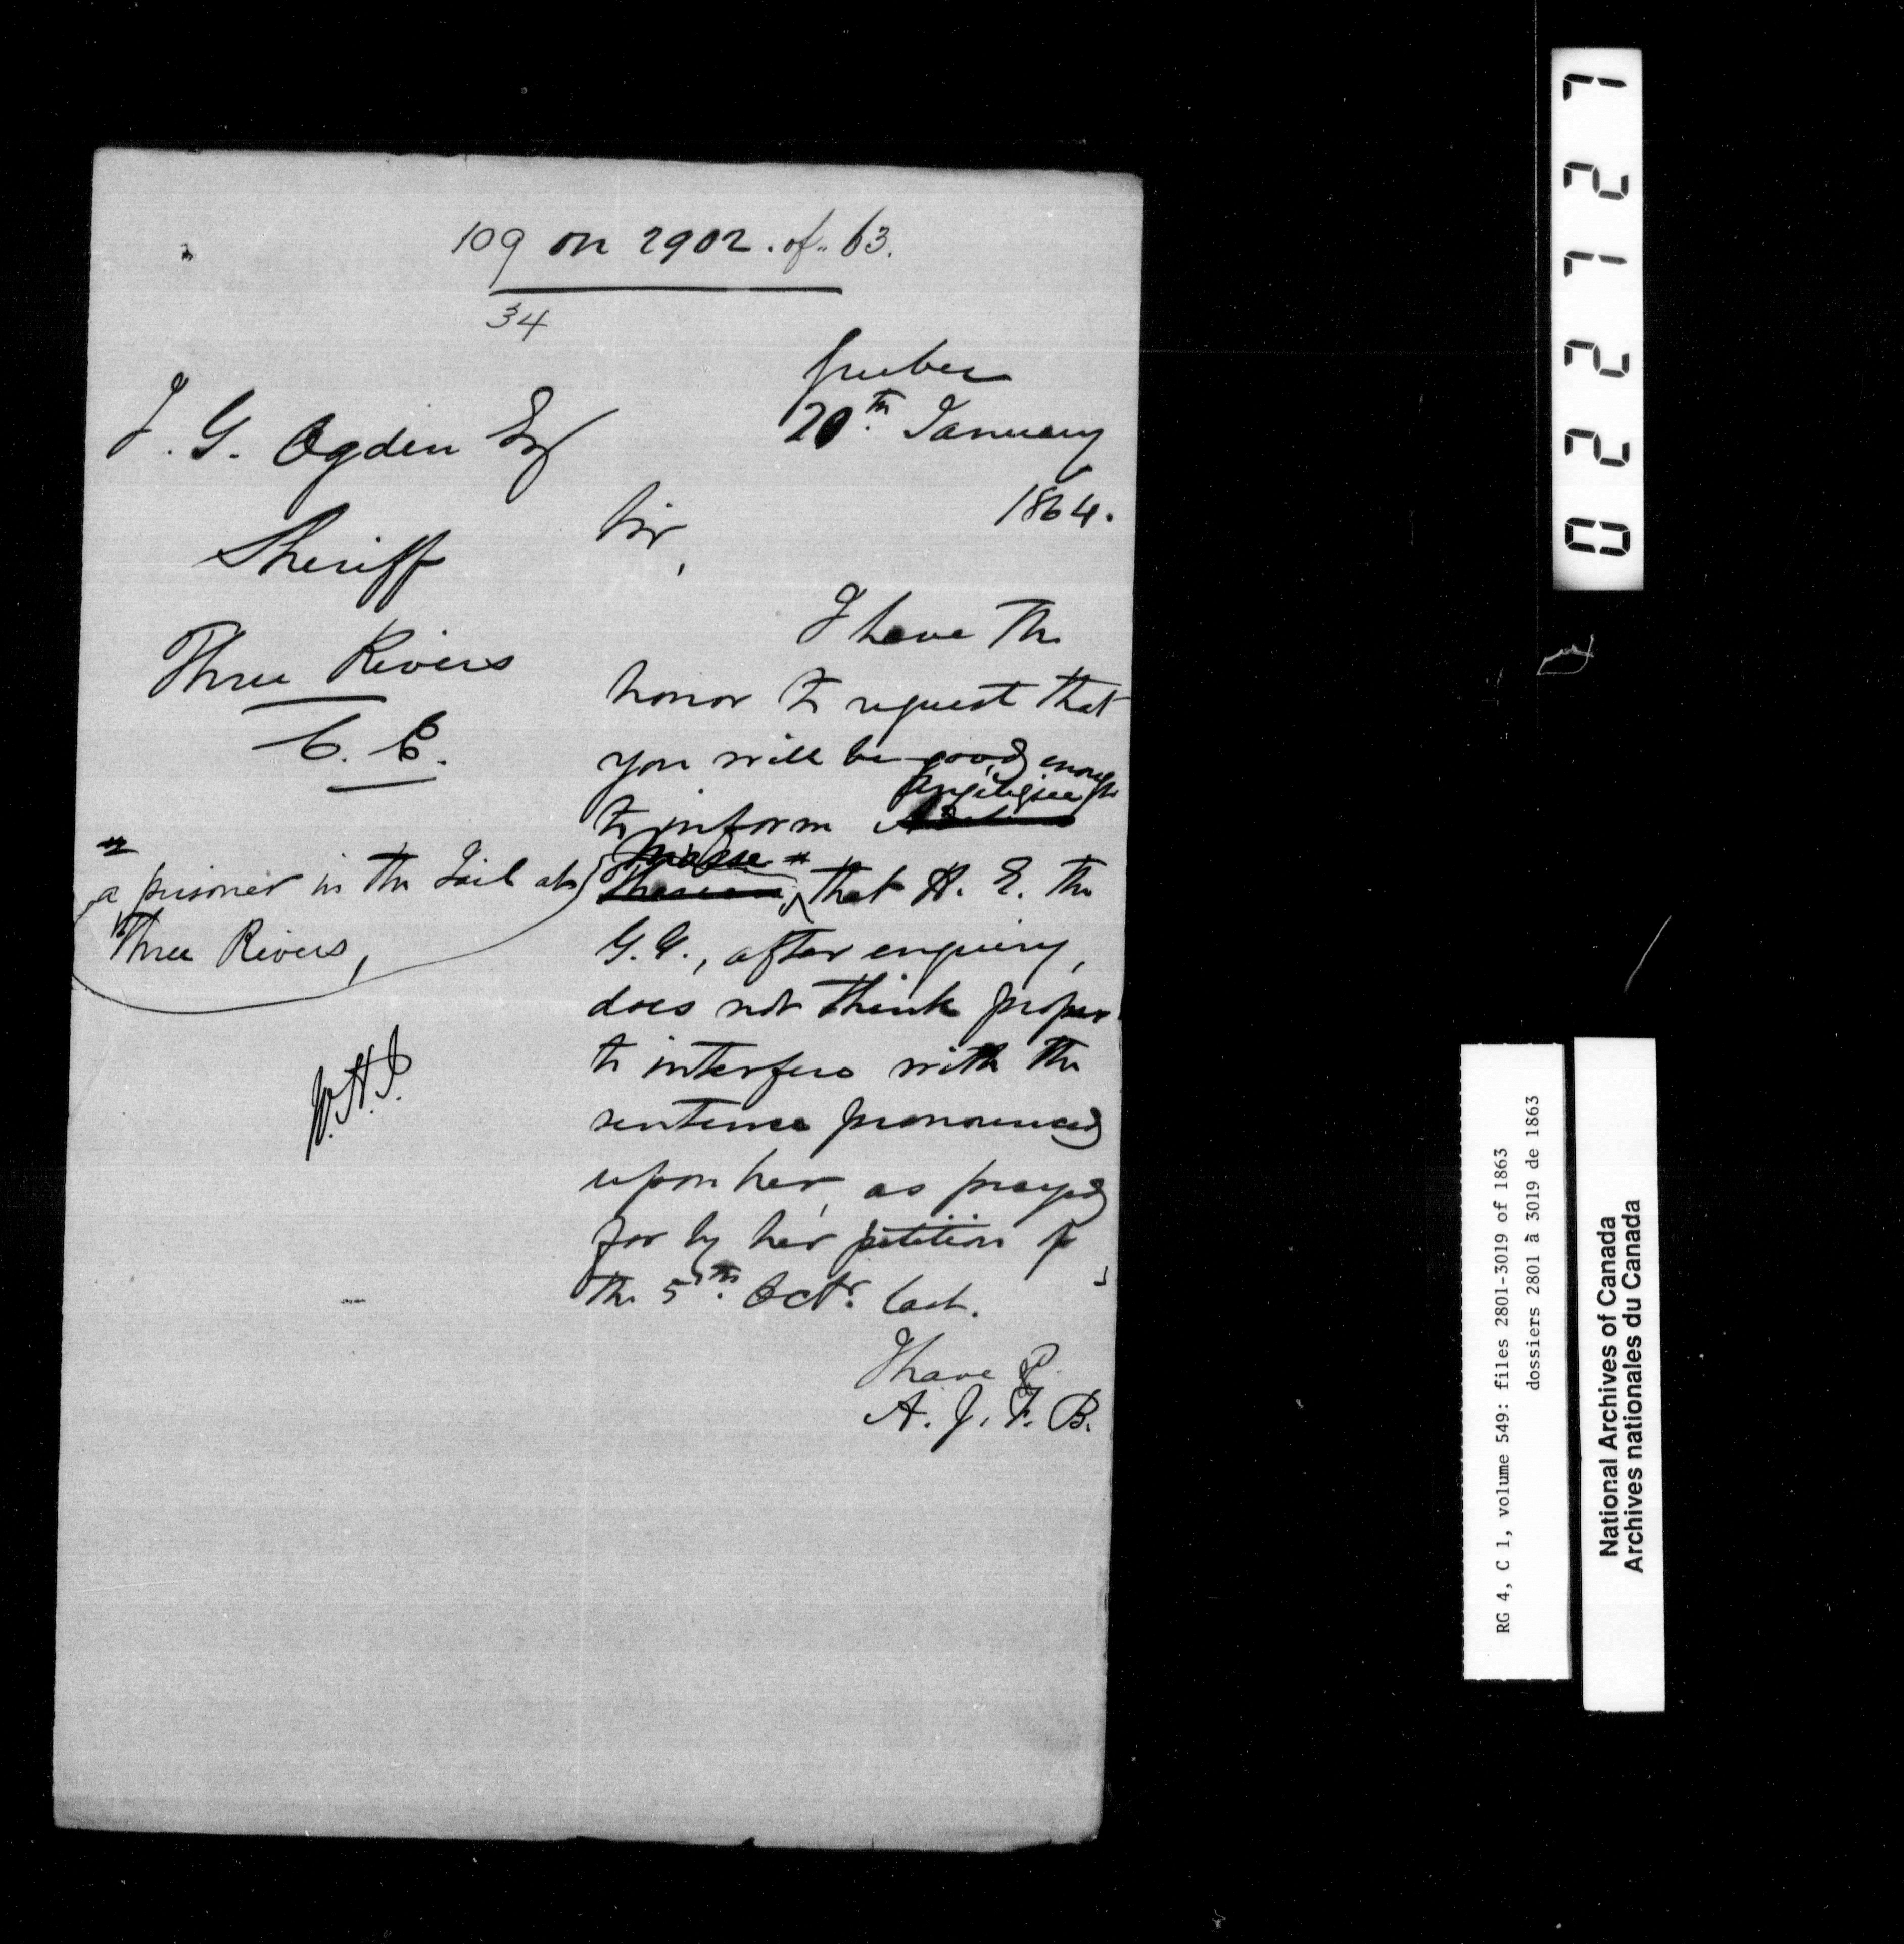 109 on 2902 . of .. 63.
34
Quebec
20th January
1864.
I. G. Ogden Esq
Sheriff
Three Rivers
C. E.
Sir,
I have the
honor to request that
you will be good enough
Angelique
to inform
Masse #
that H. E. the
# a prisoner in the Jail at
Three Rivers,
G. G., after enquiry,
does not think proper
to interfere with the
sentence pronounced
upon her, as prayed
for by her petition of
the 5th Octr. last.
I have &
A. J. F. B.
W.H.J.
022127
RG 4, C 1, volume 549: files 2801-3019 of 1863
dossiers 2801 à 3019 de 1863
National Archives of Canada
Archives nationales du Canada